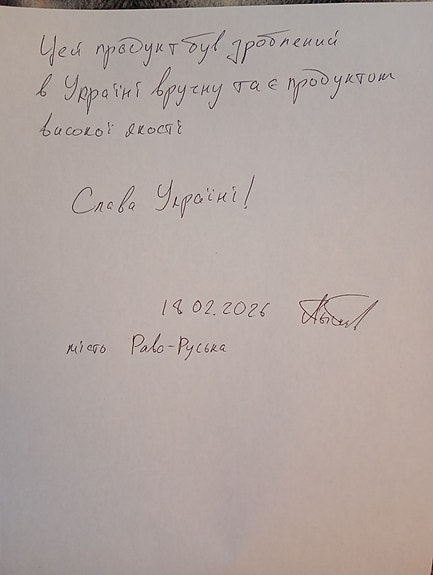 Цей продукт був зроблений
в Україні вручну та є продуктом
високої якості
Слава Україні!
18.02.2026
мість Раво-Руська